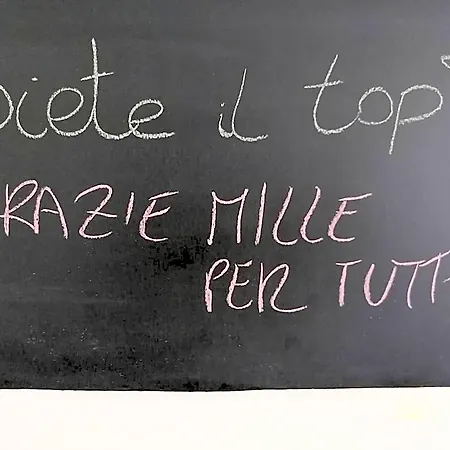 siete il top!
GRAZIE MILLE
PER TUTT